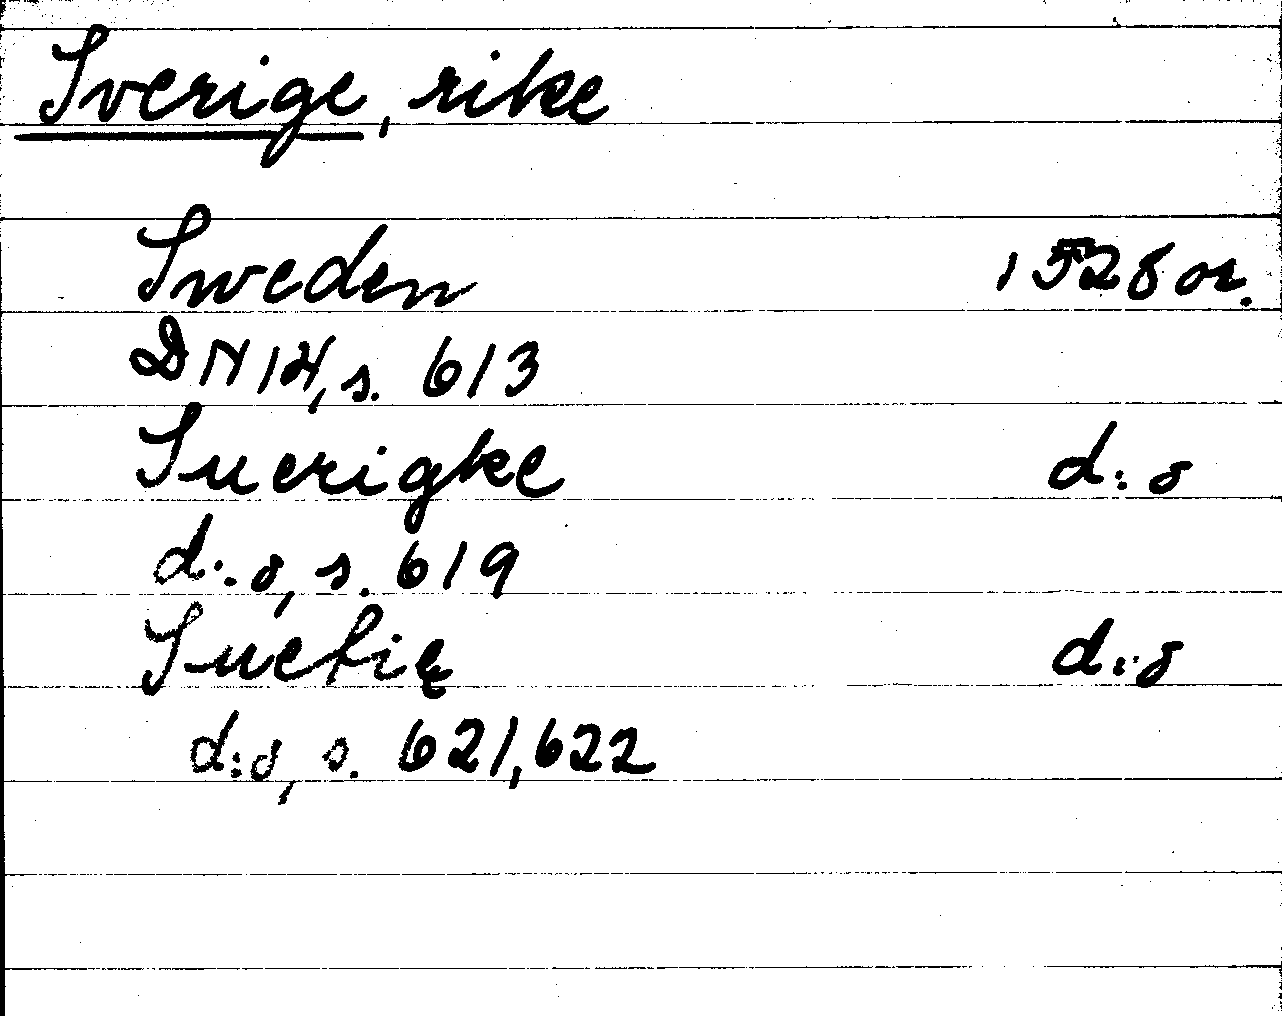 Sverige, rike
Sweden 1528 or.
DN 14, s. 613
Suerigke d:o
d:o, s. 619
Suetię d:o
d:o, s. 621, 622